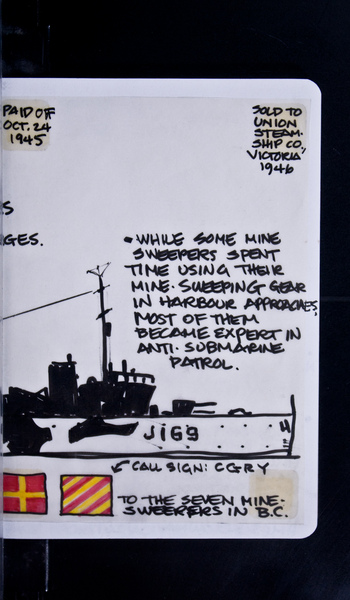 PAID OFF
OCT. 24
1945
SOLD TO
UNION
STEAM-
SHIP CO.
"VICTORIA"
1946
S
GES.
• WHILE SOME MINE
SWEEPERS SPENT
TIME USING THEIR
MINE-SWEEPING GEAR
IN HARBOUR APPROACHES,
MOST OF THEM
BECAME EXPERT IN
ANTI-SUBMARINE
PATROL.
J169
CALL SIGN: CGRY
TO THE SEVEN MINE-
SWEEPERS IN B.C.